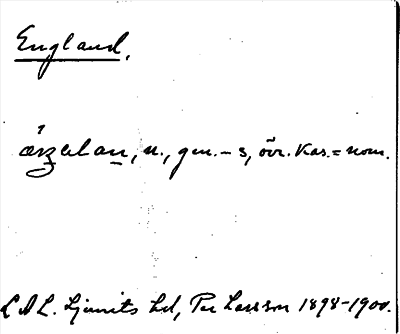 England.
n., gen. – s, övr. kas. = nom.
L A L. Ljunits hd, Per Larsson 1898–1900.